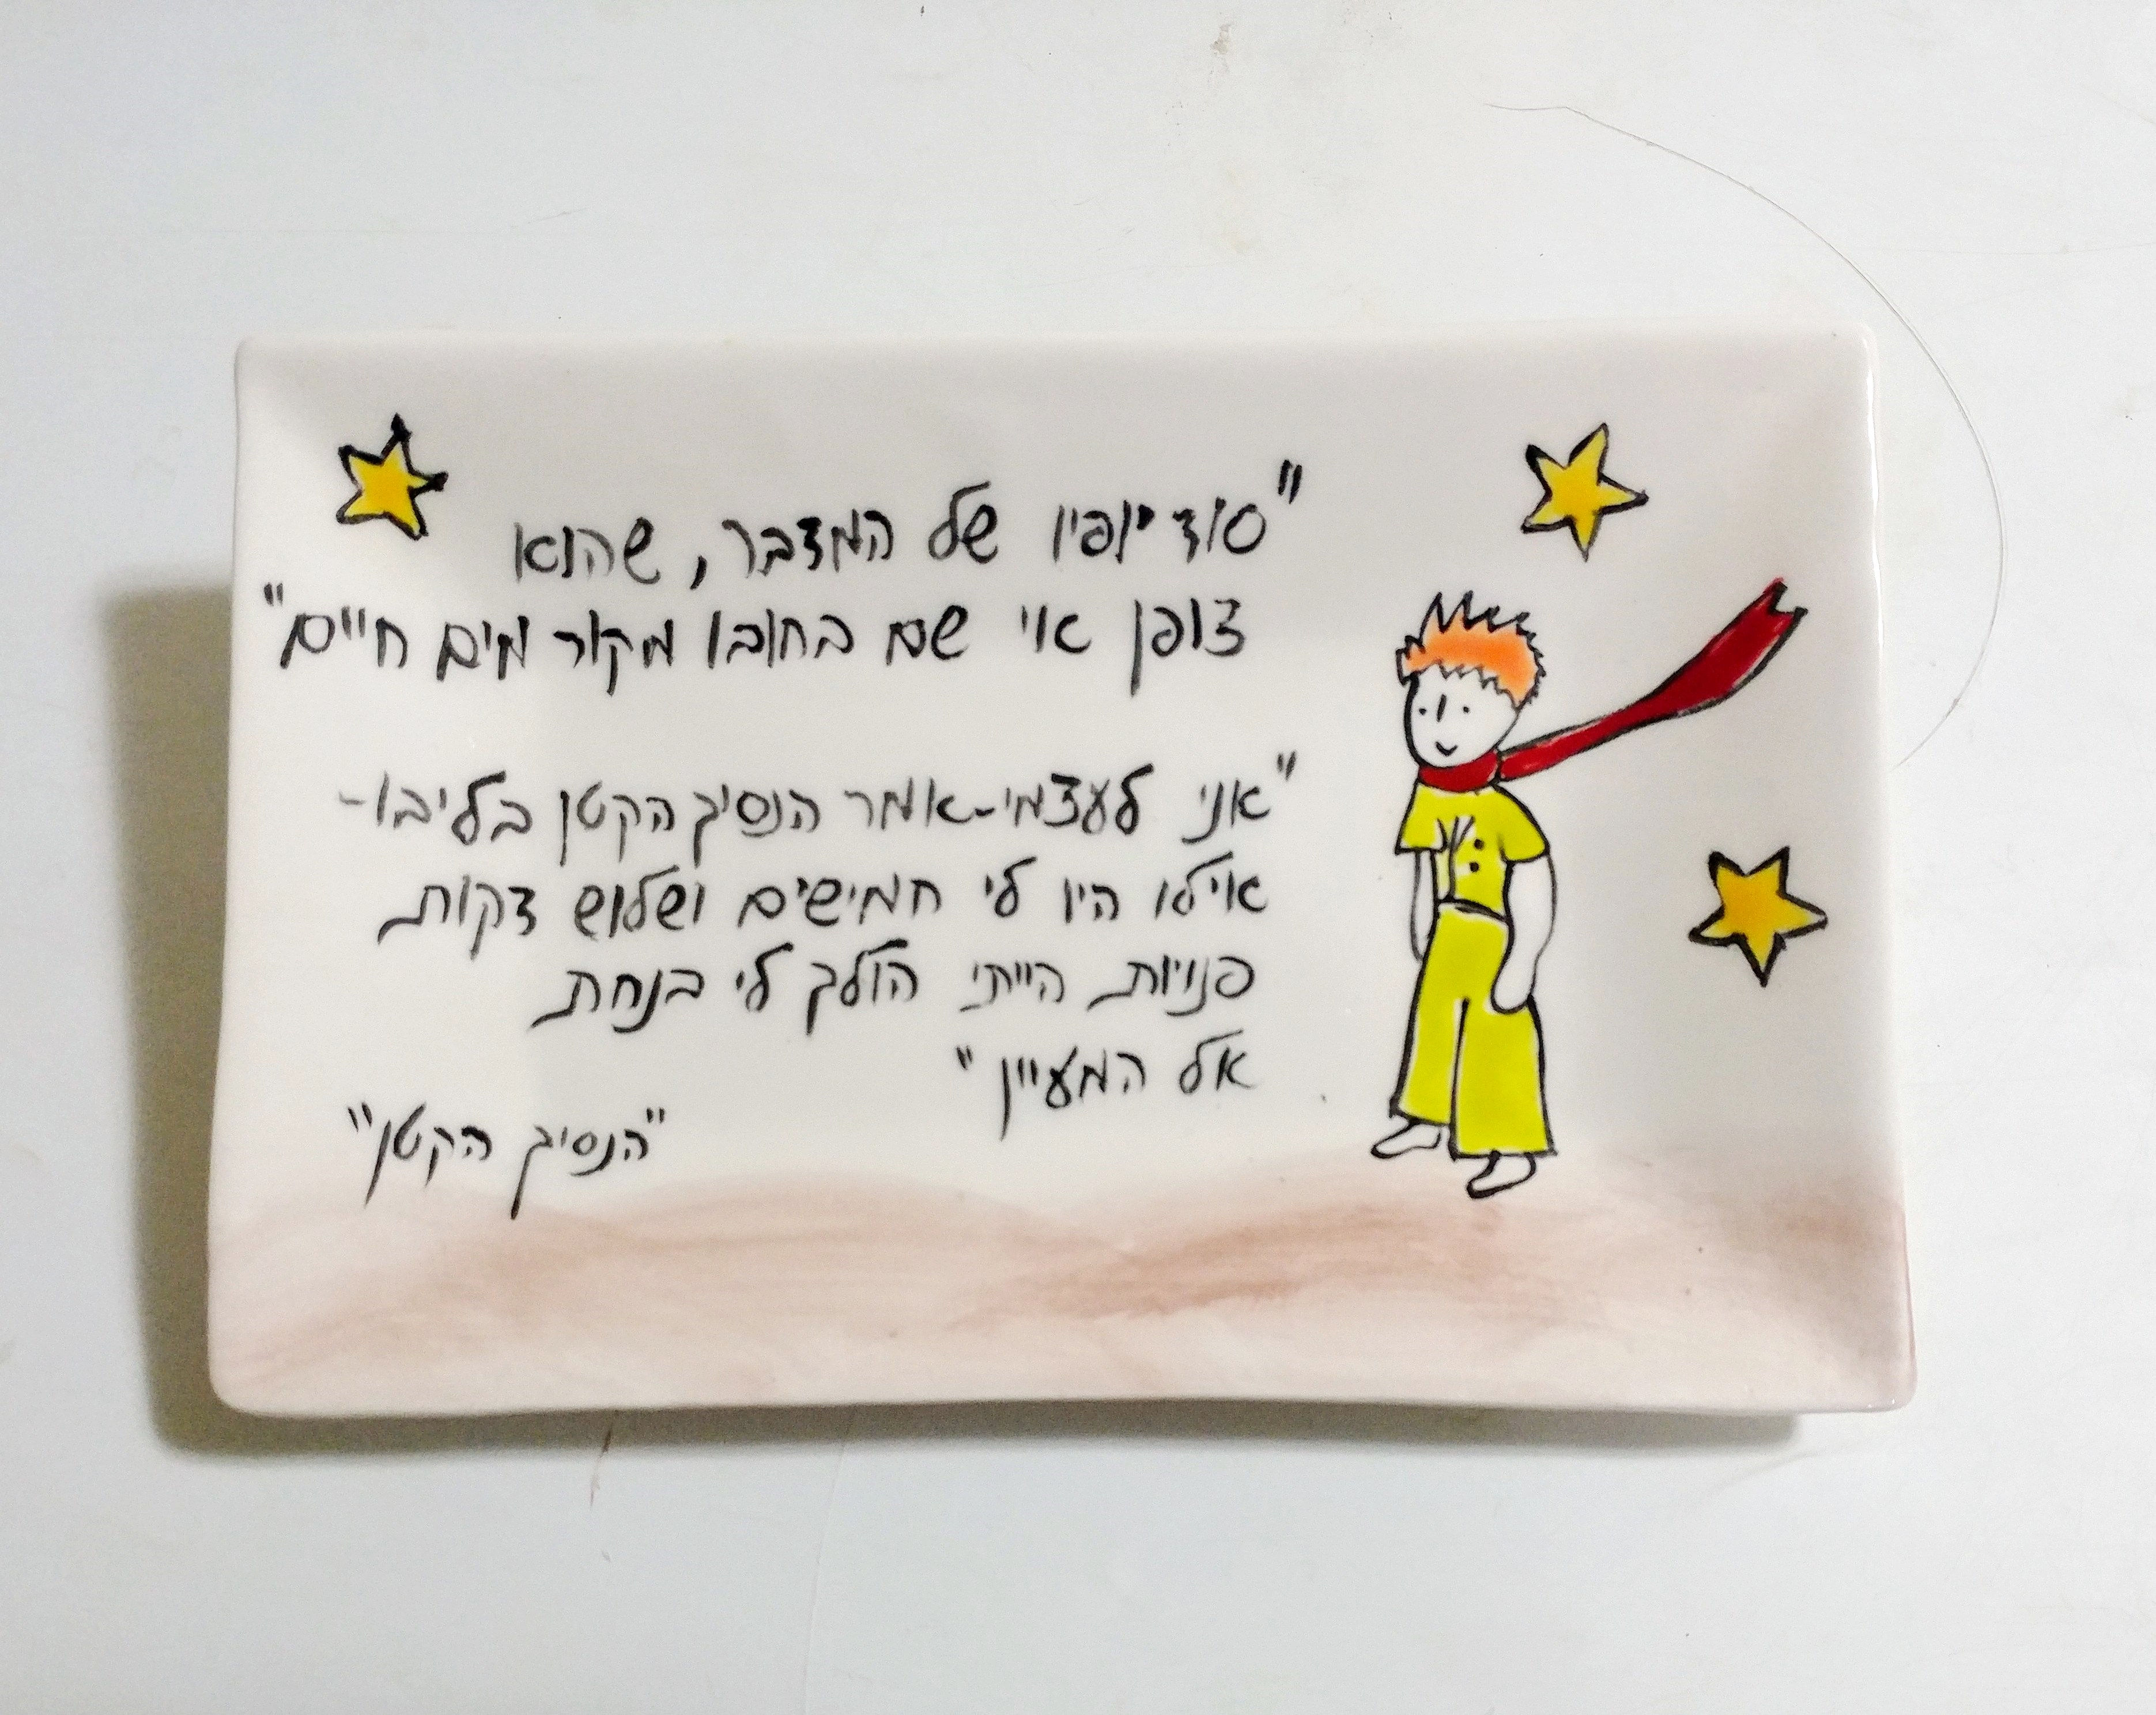 "סוד יופיו של המדבר, שהוא
צופן אי שם בחובו מקור מים חיים"
"אני לעצמי-אמר הנסיך הקטן בליבו-
אילו היו לי חמישים ושלוש דקות
פנויות הייתי הולך לי בנחת
אל המעיין"
"הנסיך הקטן"